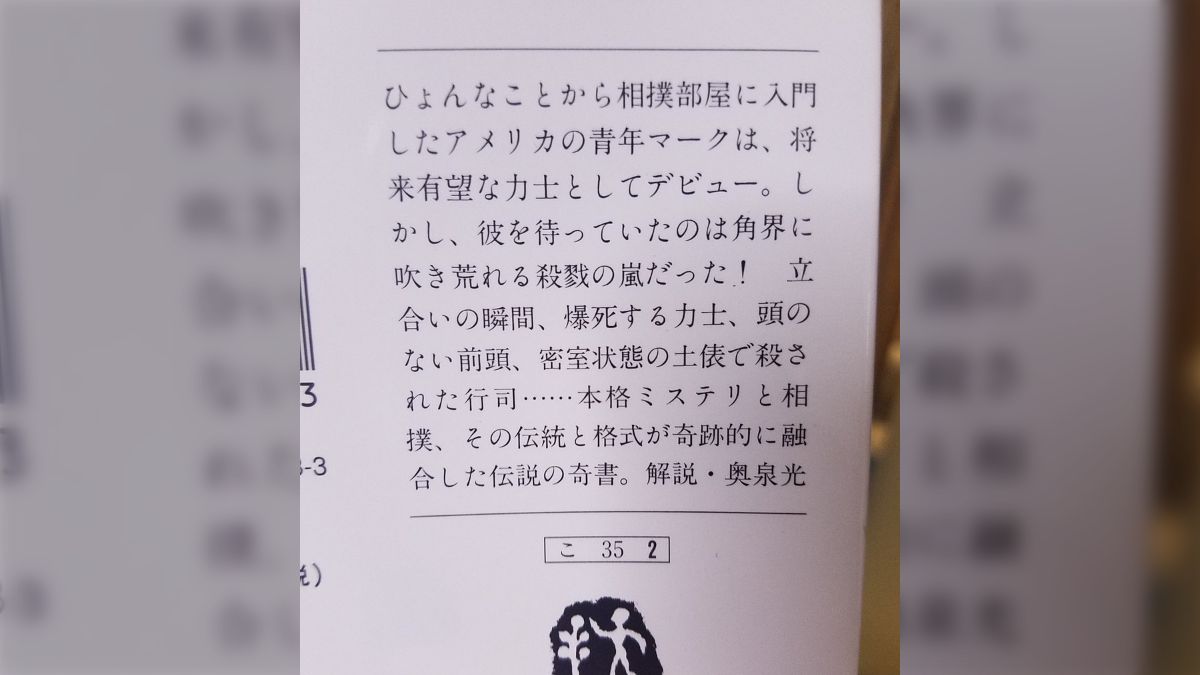 ひょんなことから相撲部屋に入門
したアメリカの青年マークは、将
来有望な力士としてデビュー。し
かし、彼を待っていたのは角界に
吹き荒れる殺戮の嵐だった！　立
合いの瞬間、爆死する力士、頭の
ない前頭、密室状態の土俵で殺さ
れた行司……本格ミステリと相
撲、その伝統と格式が奇跡的に融
合した伝説の奇書。解説・奥泉光
こ 35 2
3
3-3
税)